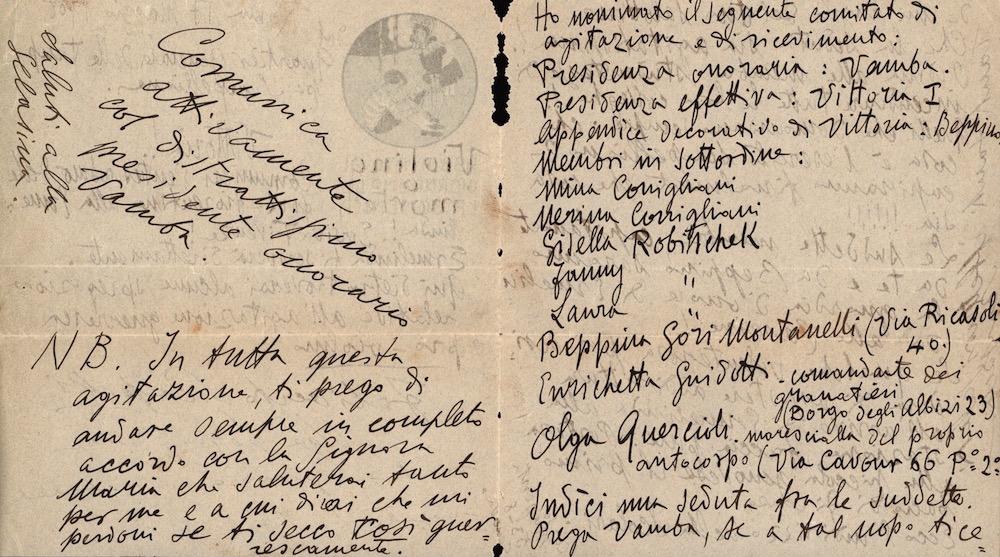 Saluti alla
Gellasina.
Comunica
attivamente
col distrattissimo
presidente onorario
Vamba.
NB. In tutta questa
agitazione, ti prego di
andare sempre in completo
accordo con la Signora
Maria che saluterai tanto
per me e a cui dirai che mi
perdoni se ti secco così guer-
rescamente.
Ho nominato il seguente comitato di
agitazione e di ricevimento:
Presidenza onoraria: Vamba.
Presidenza effettiva: Vittoria I
Appendice decorativo di Vittoria: Beppino
Membri in sottordine:
Mina Conigliani
Nerina Conigliani
Gisella Robitschek
Fanny "
Laura
Beppina Göri Montanelli (Via Ricasoli
40)
Enrichetta Guidotti - comandante dei
granatieri
(Borgo degli Albizi 23)
Olga Quercioli. marescialla del proprio
autocorpo (Via Cavour 66 P.º 2º
Indici una seduta fra le suddette.
Prega Vamba, se a tal uopo ti ce=